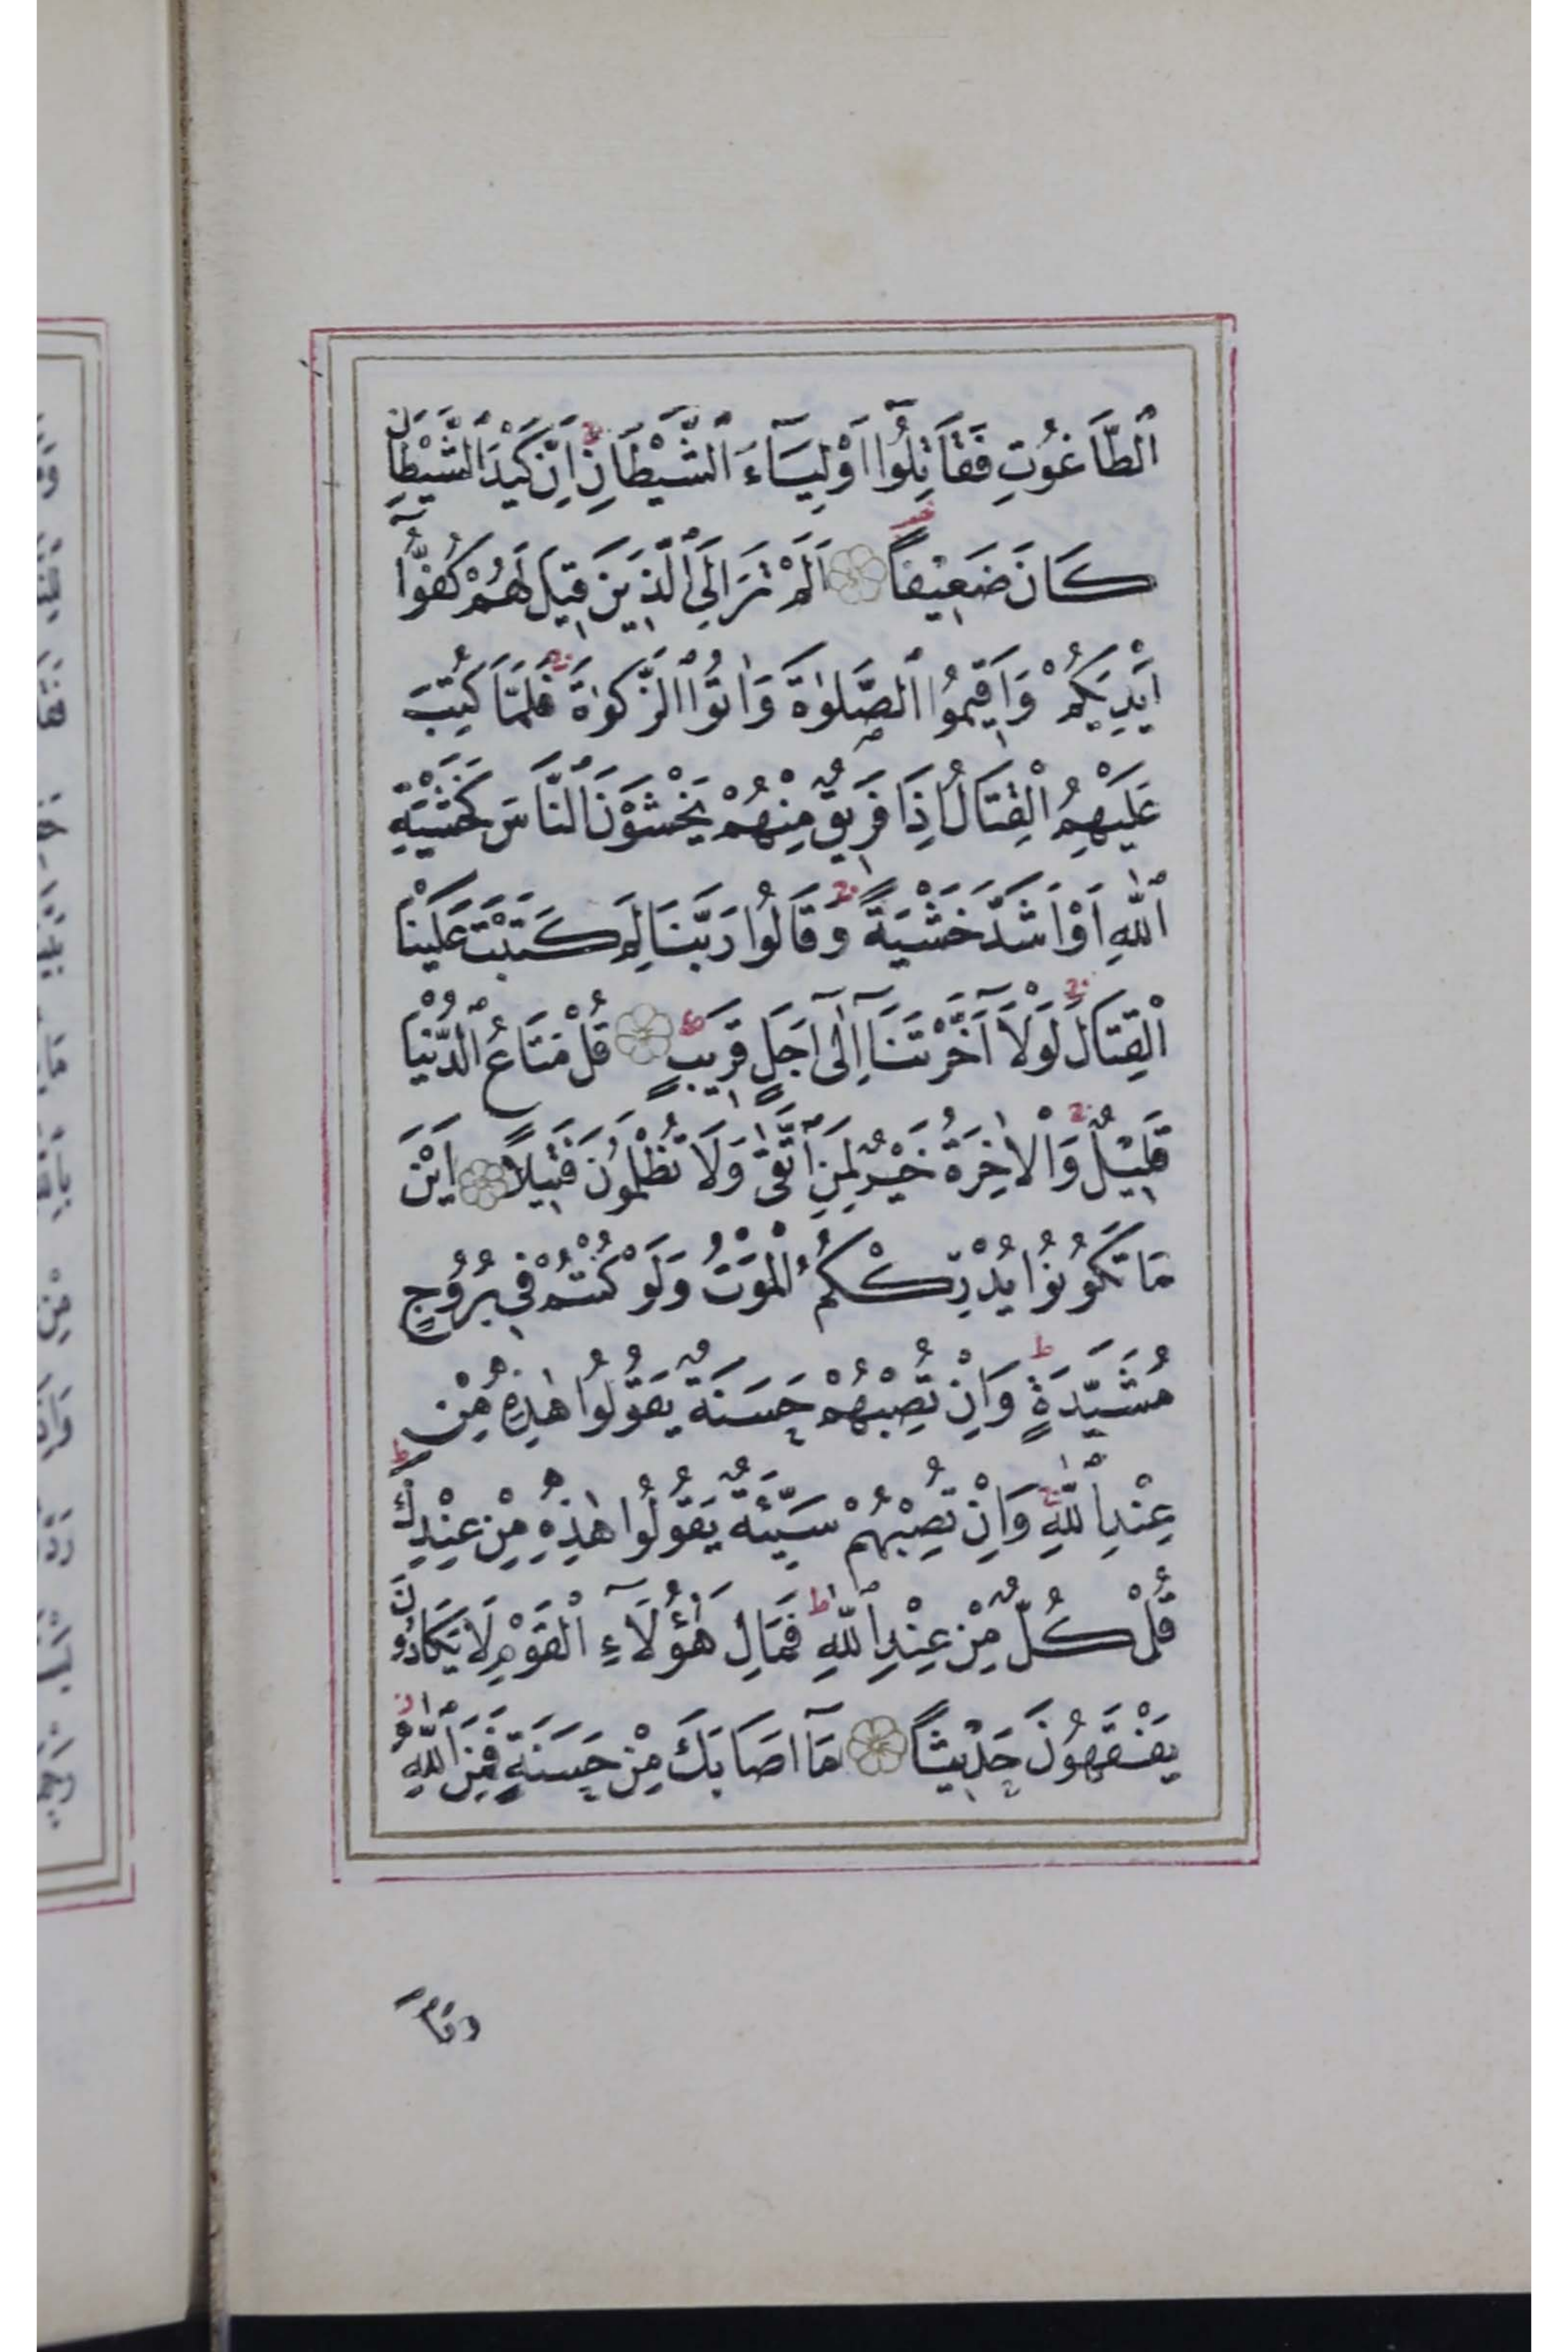 ٱلطَّاغُوتِ فَقَاتِلُٓوا اَوْلِيَٓاءَ ٱلشَّيْطَانِ اِنَّ كَيْدَ ٱلشَّيْطَانِ
كَانَ ضَعِيفًا اَلَمْ تَرَ اِلَى ٱلَّذِينَ قِيلَ لَهُمْ كُفُّٓوا
اَيْدِيَكُمْ وَاَقِيمُوا ٱلصَّلٰوةَ وَاٰتُوا ٱلزَّكٰوةَ فَلَمَّا كُتِبَ
عَلَيْهِمُ الْقِتَالُ اِذَا فَرِيقٌ مِنْهُمْ يَخْشَوْنَ ٱلنَّاسَ كَخَشْيَةِ
ٱللّٰهِ اَوْ اَشَدَّ خَشْيَةً وَقَالُوا رَبَّنَا لِمَ كَتَبْتَ عَلَيْنَا
الْقِتَالَ لَوْلَٓا اَخَّرْتَنَٓا اِلٰٓى اَجَلٍ قَرِيبٍ قُلْ مَتَاعُ ٱلدُّنْيَا
قَلِيلٌ وَالْاٰخِرَةُ خَيْرٌ لِمَنِ ٱتَّقٰى وَلَا تُظْلَمُونَ فَتِيلًا اَيْنَ
مَا تَكُونُوا يُدْرِكْكُمُ الْمَوْتُ وَلَوْ كُنْتُمْ فِي بُرُوجٍ
مُشَيَّدَةٍ وَاِنْ تُصِبْهُمْ حَسَنَةٌ يَقُولُوا هٰذِهِ مِنْ
عِنْدِ ٱللّٰهِ وَاِنْ تُصِبْهُمْ سَيِّئَةٌ يَقُولُوا هٰذِهِ مِنْ عِنْدِكَ
قُلْ كُلٌّ مِنْ عِنْدِ ٱللّٰهِ فَمَالِ هٰٓؤُلَاءِ الْقَوْمِ لَا يَكَادُونَ
يَفْقَهُونَ حَدِيثًا مَٓا اَصَابَكَ مِنْ حَسَنَةٍ فَمِنَ ٱللّٰهِ
وَمَٓا